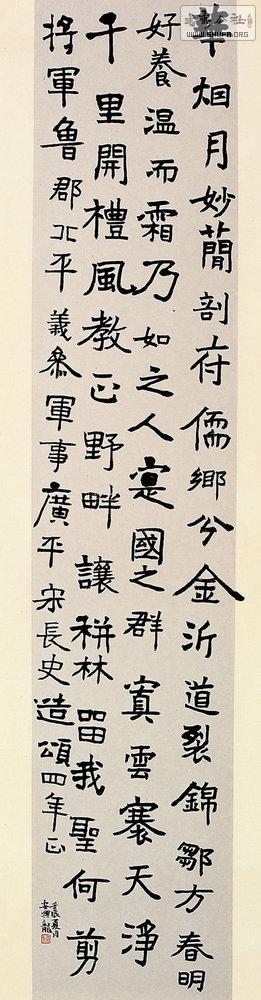 華畑月妙蕳剖府儒鄉兮金沂道裂錦鄒方春明
好養溫而霜乃如之人寔國之群賓雲寨天淨
千里開禮風教正野畔讓林畱我聖何剪
將軍魯郡北平義叅軍事廣平宋長史造頌四年正
壬辰夏月
WWW.SHUFA.ORG